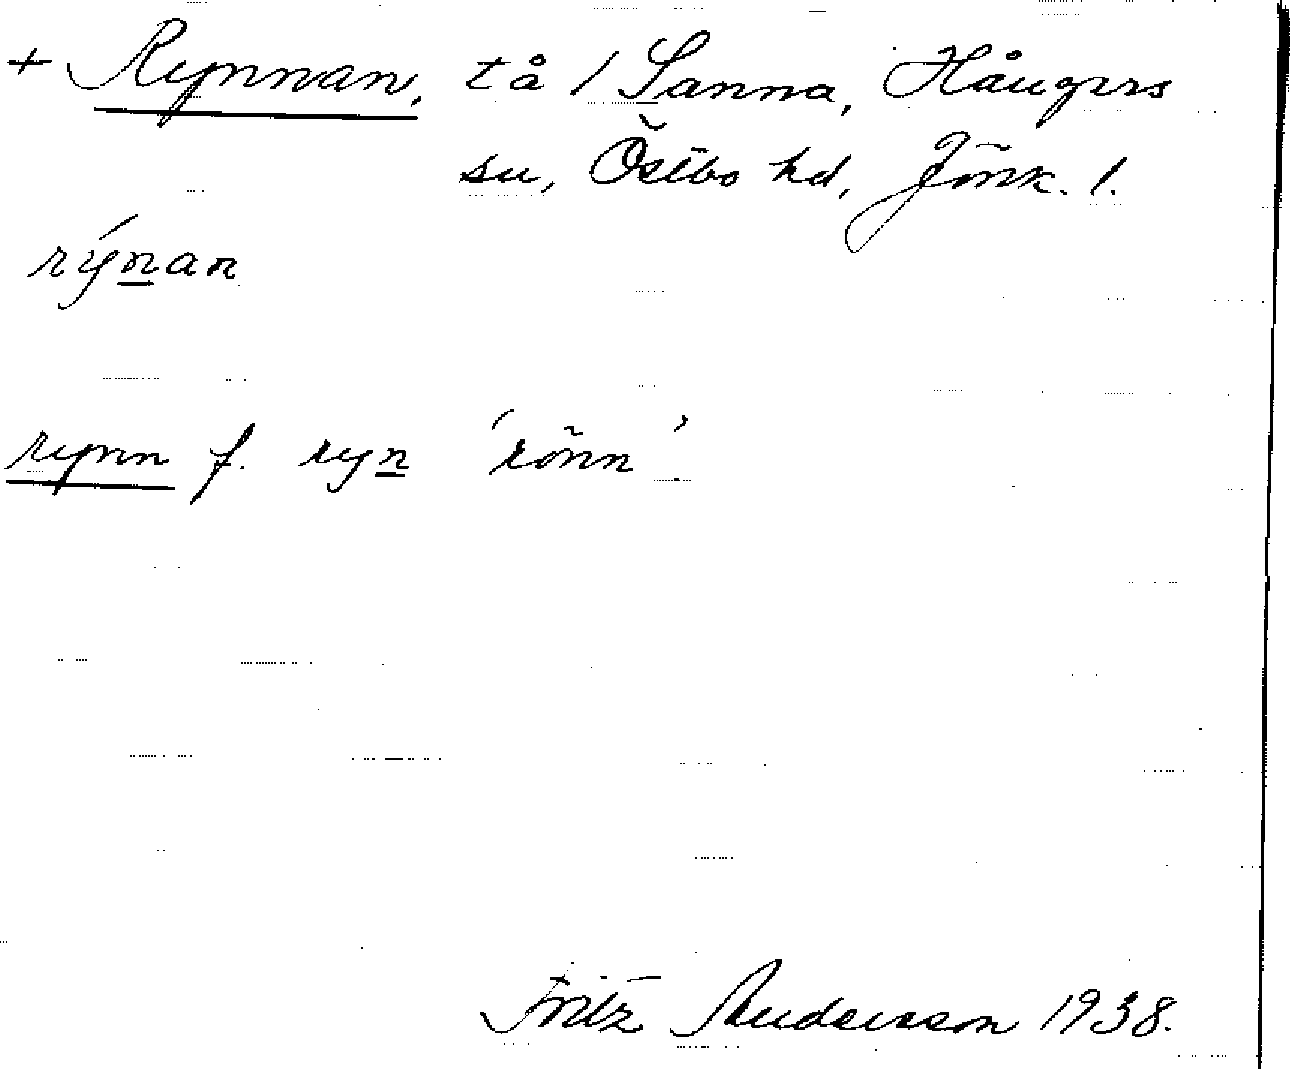 + Rynnan, tå / Sanna, Hångers
sn, Östbo hd, Jönk. l.
rýnan
rynn f. ryn 'rönn'.
Fritz Andersson 1938.